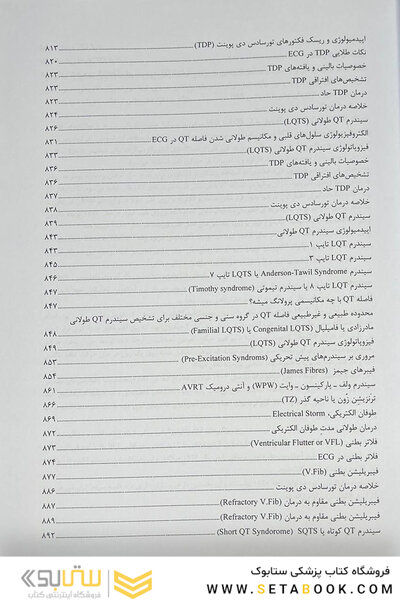 اپیدمیولوژی و ریسک فکتورهای تورسادس دی پوینت (TDP) ۸۱۳
نکات طلایی TDP در ECG ۸۲۰
خصوصیات بالینی و یافته‌های TDP ۸۲۳
تشخیص‌های افتراقی TDP ۸۲۳
درمان TDP حاد ۸۲۳
خلاصه درمان تورسادس دی پوینت ۸۲۴
سیندرم QT طولانی (LQTS) ۸۲۶
الکتروفیزیولوژی سلول‌های قلبی و مکانیسم طولانی شدن فاصله QT در ECG ۸۳۱
فیزوپاتولوژی سیندرم QT طولانی (LQTS) ۸۳۳
خصوصیات بالینی و یافته‌های TDP ۸۳۶
تشخیص‌های افتراقی TDP ۸۳۶
درمان TDP حاد ۸۳۷
خلاصه درمان تورسادس دی پوینت ۸۳۸
سیندرم QT طولانی (LQTS) ۸۳۹
اپیدمیولوژی سیندرم QT طولانی ۸۴۳
سیندرم LQT تایپ ۱ ۸۴۳
سیندرم LQT تایپ ۳ ۸۴۵
سیندرم Anderson-Tawil Syndrome یا LQTS تایپ ۷ ۸۴۶
سیندرم LQT تایپ ۸ یا سیندرم تیموتی (Timothy syndrome) ۸۴۷
فاصله QT با چه مکانیسمی پرولانگ میشه؟ ۸۴۷
محدوده طبیعی و غیرطبیعی فاصله QT در گروه سنی و جنسی مختلف برای تشخیص سیندرم QT طولانی
مادرزادی یا فامیلیال (Congenital LQTS یا Familial LQTS) ۸۴۸
فیزوپاتولوژی سیندرم QT طولانی (LQTS) ۸۴۹
مروری بر سیندرم‌های پیش تحریکی (Pre-Excitation Syndroms) ۸۵۳
فیبرهای جیمز (James Fibres) ۸۵۴
سیندرم ولف ـ پارکینسون ـ وایت (WPW) و آنتی درومیک AVRT ۸۶۱
ترنزیشن زون یا ناحیه گذر (TZ) ۸۶۶
طوفان الکتریکی، Electrical Storm ۸۶۹
درمان طولانی مدت طوفان الکتریکی ۸۷۲
فلاتر بطنی (Ventricular Flutter or VFL) ۸۷۳
فلاتر بطنی در ECG ۸۷۴
فیبریلیشن بطنی (V.Fib) ۸۷۷
خلاصه درمان تورسادس دی پوینت ۸۸۶
فیبریلیشن بطنی مقاوم به درمان (Refractory V.Fib) ۸۸۷
فیبریلیشن بطنی مقاوم به درمان (Refractory V.Fib) ۸۸۹
سیندرم QT کوتاه یا SQTS (Short QT Syndorome) ۸۹۲
فروشگاه کتاب پزشکی ستابوک
WWW.SETABOOK.COM
ستابوک
فروشگاه اینترنتی کتاب